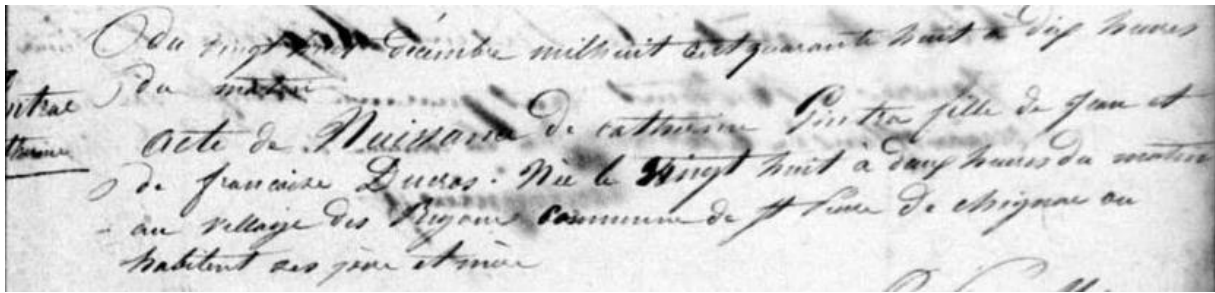 du vingt neuf décembre mil huit cent quarante huit à dix heures
du matin
Acte de Naissance de catherine Gintrac fille de Jean et
de francoise Ducros. Née le vingt huit à deux heures du matin
au village des commune de St Pierre de chignac ou
habitent ses père et mère